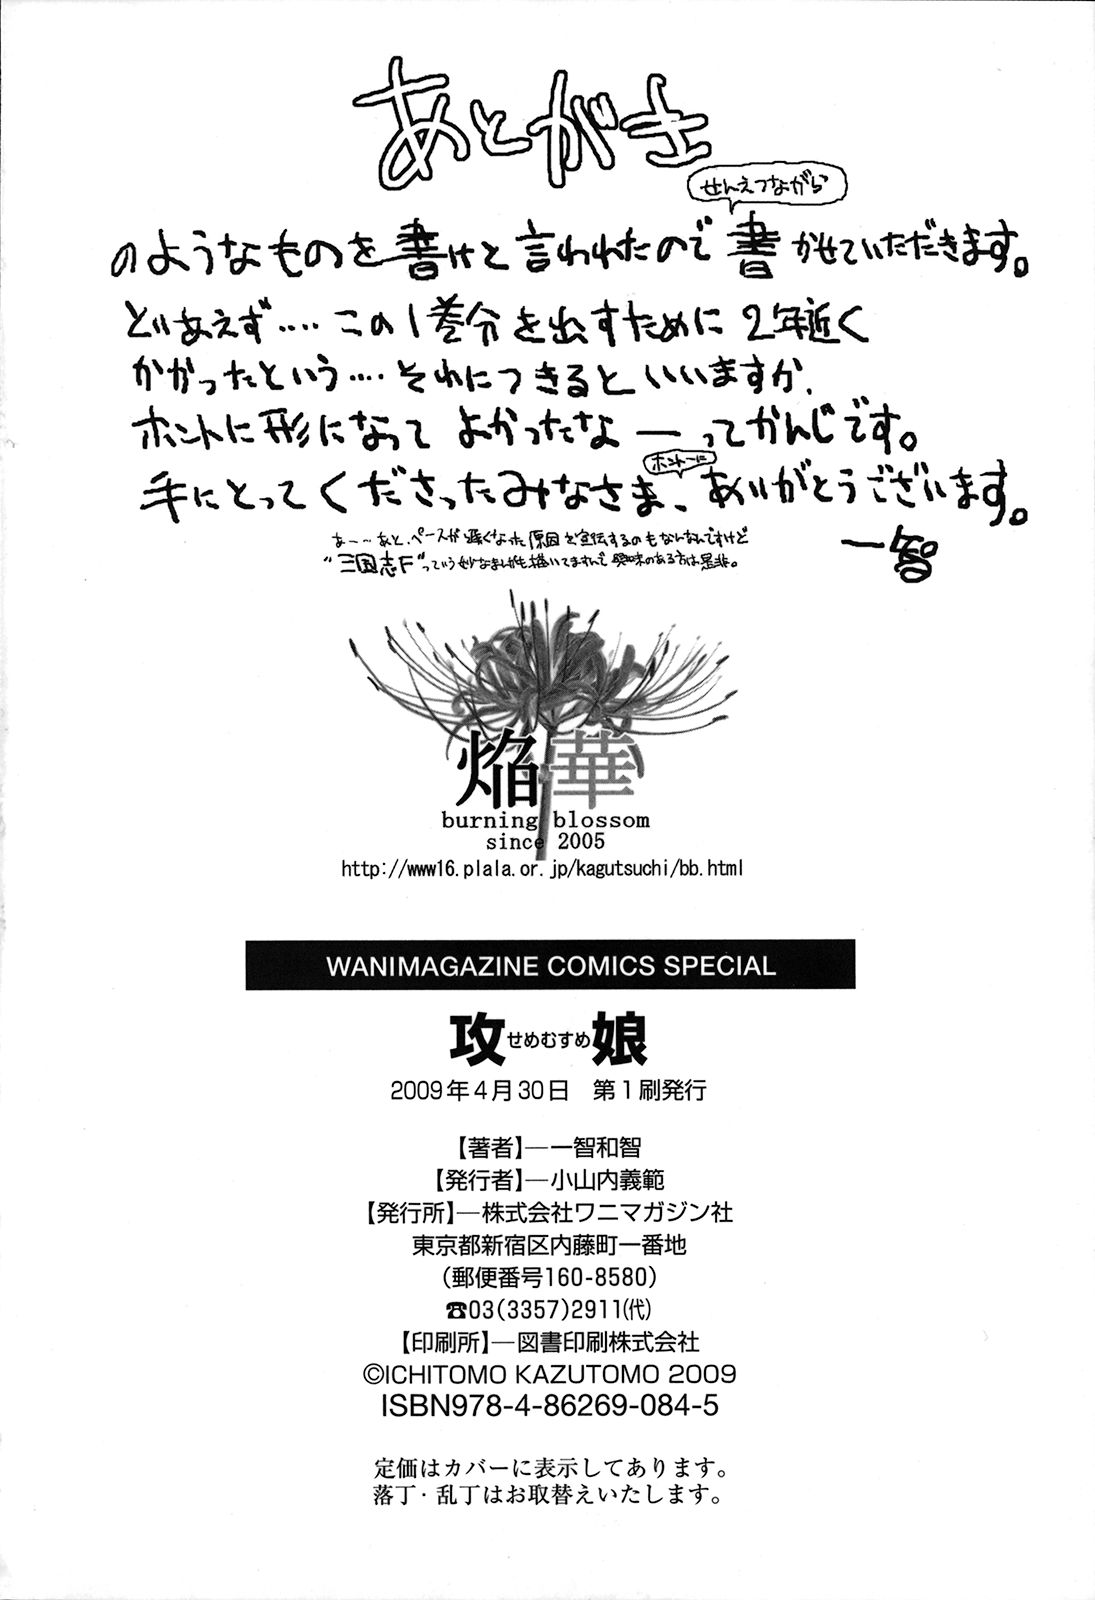 あとがき
せんえつながら
のようなものを書けと言われたので書かせていただきます。
とりあえず‥‥この1巻分を出すために2年近く
かかったという‥‥それにつきるといいますか、
ホントに形になってよかったなーってかんじです。
ホントーに
手にとってくださったみなさま、ありがとうございます。
あ〜〜あと、ペースが遅くなった原因を宣伝するのもなんなんですけど
“三国志F”っていう妙なまんがも描いてますんで興味のある方は是非。
一智
焔華
burning blossom
since 2005
http://www16.plala.or.jp/kagutsuchi/bb.html
WANIMAGAZINE COMICS SPECIAL
攻せめむすめ娘
2009年4月30日　第1刷発行
【著者】―一智和智
【発行者】―小山内義範
【発行所】―株式会社ワニマガジン社
東京都新宿区内藤町一番地
（郵便番号160-8580）
☎03(3357)2911㈹
【印刷所】―図書印刷株式会社
©ICHITOMO KAZUTOMO 2009
ISBN978-4-86269-084-5
定価はカバーに表示してあります。
落丁・乱丁はお取替えいたします。